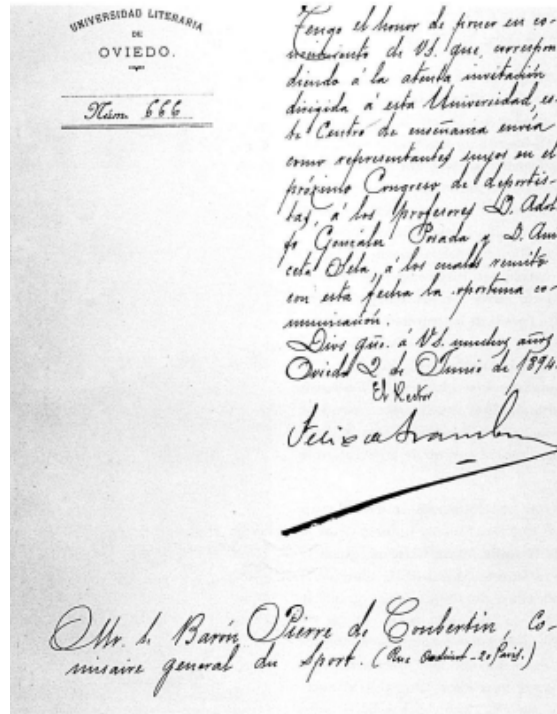 UNIVERSIDAD LITERARIA
DE
OVIEDO.
Núm. 666
Tengo el honor de poner en co-
nocimiento de VS. que, correspon
diendo á la atenta invitación
dirigida á esta Universidad, es-
te Centro de enseñanza envía
como representantes suyos en el
próximo Congreso de deportis-
tas, á los profesores D. Adol
fo González Posada y D. Ani
ceto Sela, á los cuales remito
con esta fecha la oportuna co-
municación.
Dios gũe. á VS. muchos años
Oviedo 2 de Junio de 1894.
El Rector
Felix de Aramburu
Mr. le Barón Pierre de Coubertin, Co-
misaire general du Sport. (Rue - 20 Paris.)